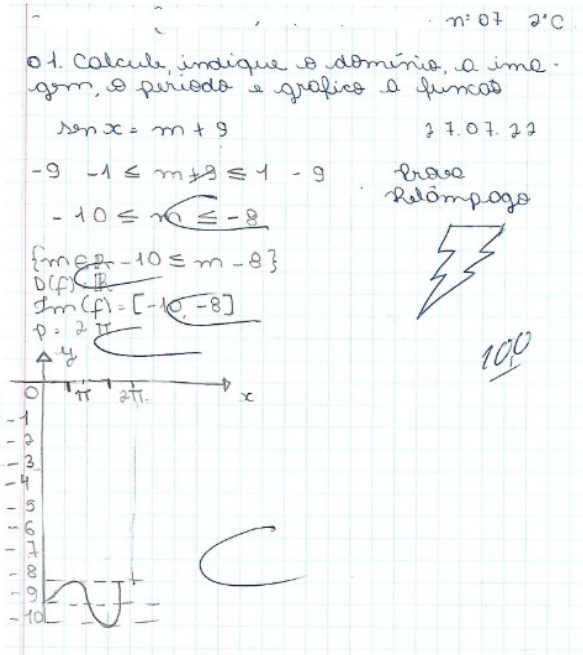 nº 07 2ºC
01. Calcule, indique o domínio, a ima-
gem, o período e gráfico a funcao
sen x = m + 9
27.07.22
-9 -1 ≤ m+9 ≤ 1 -9
Prova
Relâmpago
-10 ≤ m ≤ -8
{m ∈ R -10 ≤ m -8}
D(f) = R
Im(f) = [-10, -8]
p = 2π
10,0
y
0 π 2π x
-1
-2
-3
-4
-5
-6
-7
-8
-9
-10